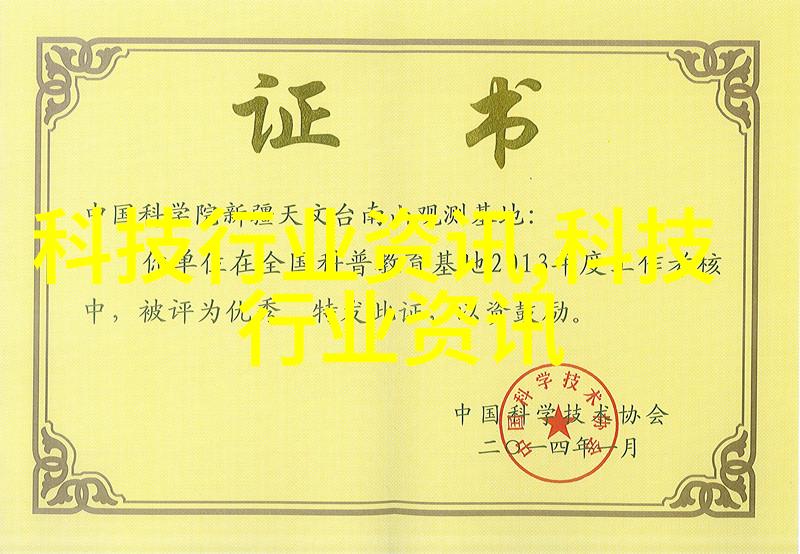 证 书
中国科学院新疆天文台南山观测基地：
科技行业资讯,科技
你单位在全国科普教育基地2013年度工作考核
中，被评为优秀，特发此证，以资鼓励。
行业资讯
中国科学技术协会
二〇一四年一月
中国科学技术协会